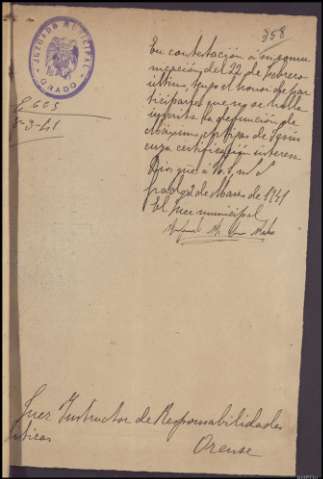 358
JUZGADO MUNICIPAL
2663
5-3-41
En contestación á su comu
nicación del 22 de febrero
último, tengo el honor de par
ticiparle que no se halla
inscrita la defunción de
Máximo
cuya certificación interesa
Dios que á V. S. m. a.
2 de Marzo de 1941
El Juez municipal
Juez Instructor de Responsabilidades
iticas
Orense